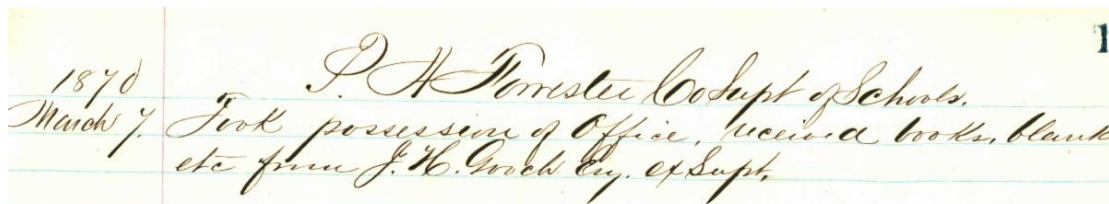 1
1870 P. H Forrester Co Supt of Schools.
March 7. Took possession of Office, received books, blank
etc from J. H. Gooch Esq. ex Supt.